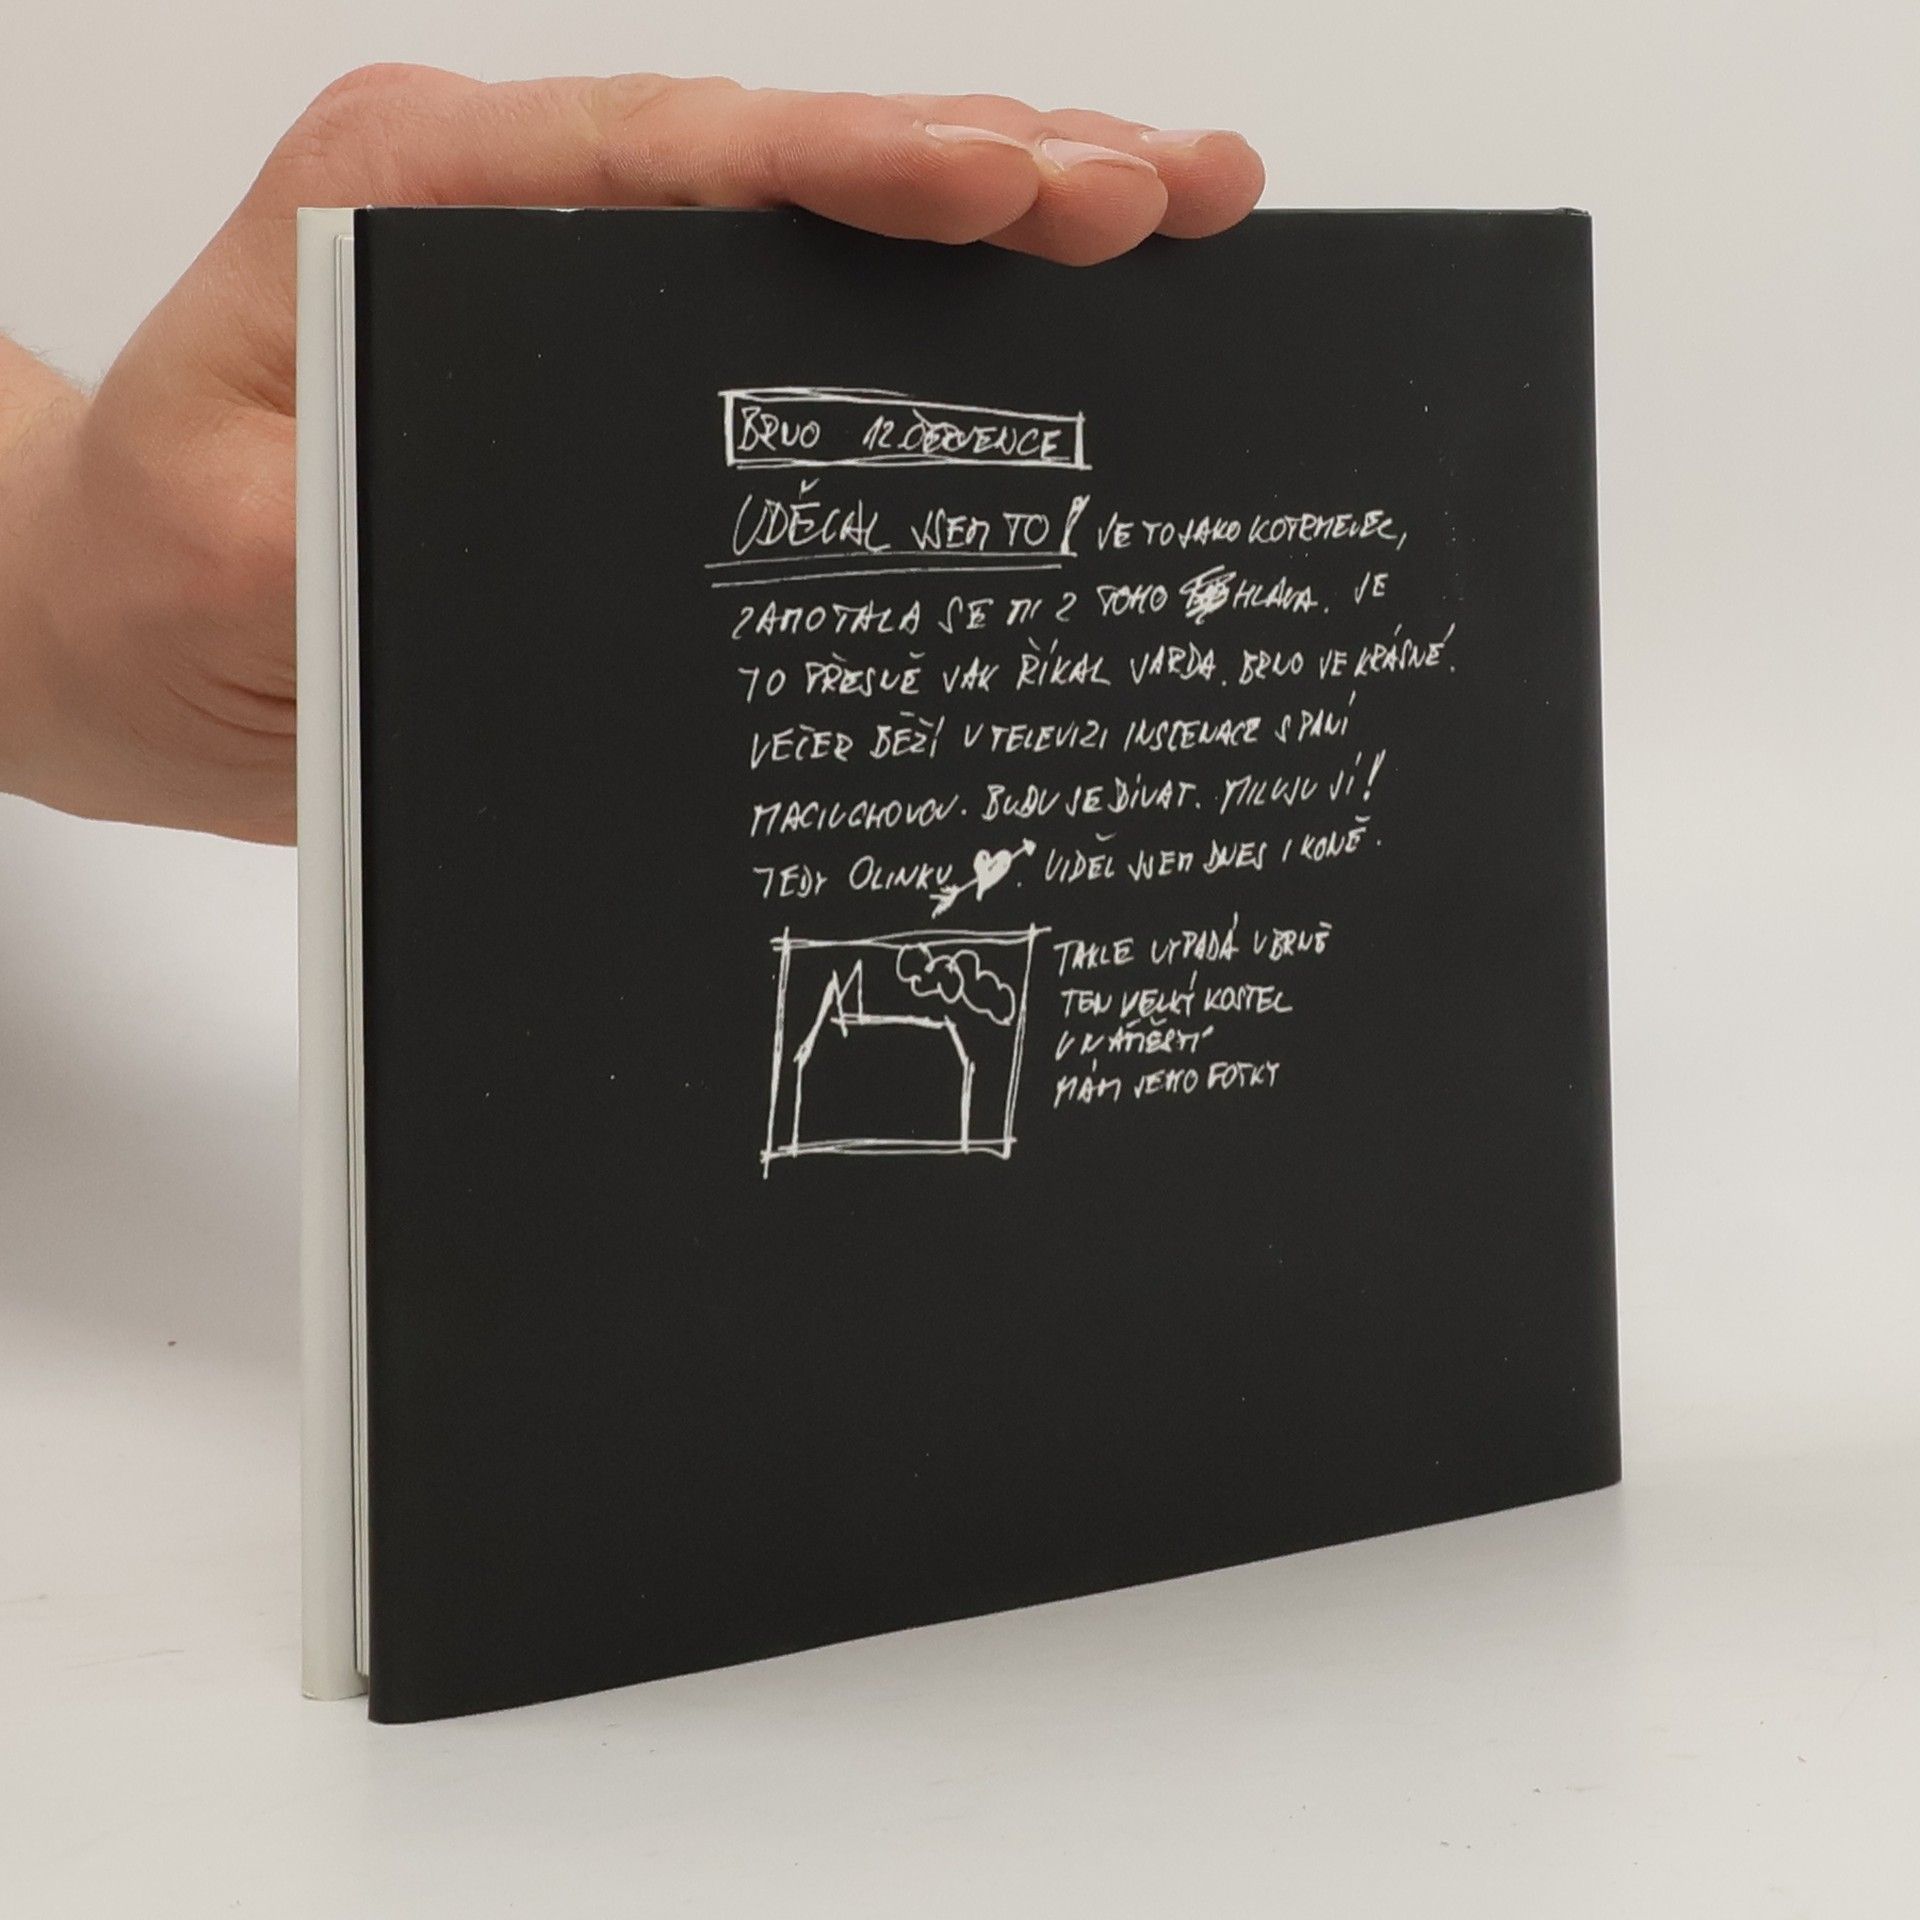 BRNO 12. ČERVENCE
UDĚLAL JSEM TO! JE TO JAKO KOTRMELEC,
ZAMOTALA SE MI Z TOHO HLAVA. JE
TO PŘESNĚ JAK ŘÍKAL VARĎA. BRNO JE KRÁSNÉ.
VEČER BĚŽÍ V TELEVIZI INSCENACE S PANÍ
MACIUCHOVOU. BUDU SE DÍVAT. MILUJU JÍ!
TEDY OLINKU. VIDĚL JSEM DNES I KONĚ.
TAKLE VYPADÁ V BRNĚ
TEN VELKÝ KOSTEL
V NÁMĚSTÍ
MÁM JEHO FOTKY